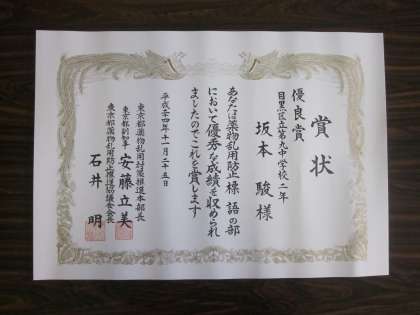 賞状
優良賞
目黒区立第九中学校二年
坂本 駿 様
あなたは薬物乱用防止標語の部
において優秀な成績を収められ
ましたのでこれを賞します
平成二十四年十一月二十五日
東京都薬物乱用対策推進本部長
東京都副知事 安藤立美
東京都薬物乱用防止推進協議会会長
石井 明